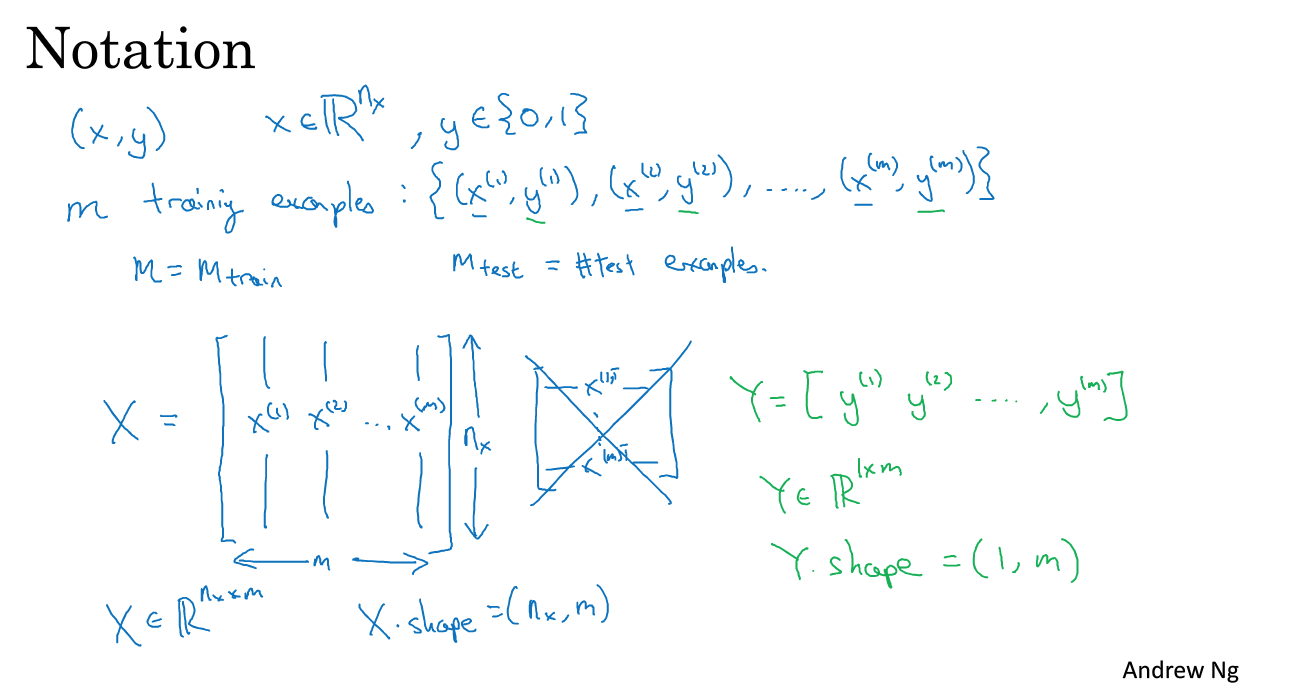 Notation
(x,y) x ∈ ℝ^{n_x} , y ∈ {0,1}
m trainiy examples : {(x^{(1)}, y^{(1)}), (x^{(2)}, y^{(2)}), ...., (x^{(m)}, y^{(m)})}
M = M_{train} M_{test} = #test examples.
X = [ x^{(1)} x^{(2)} ... x^{(m)} ] n_x
m
x^{(1)T}
x^{(m)T}
Y = [ y^{(1)} y^{(2)} ...., y^{(m)} ]
Y ∈ ℝ^{1×m}
Y.shape = (1, m)
X ∈ ℝ^{n_x × m} X.shape = (n_x, m)
Andrew Ng